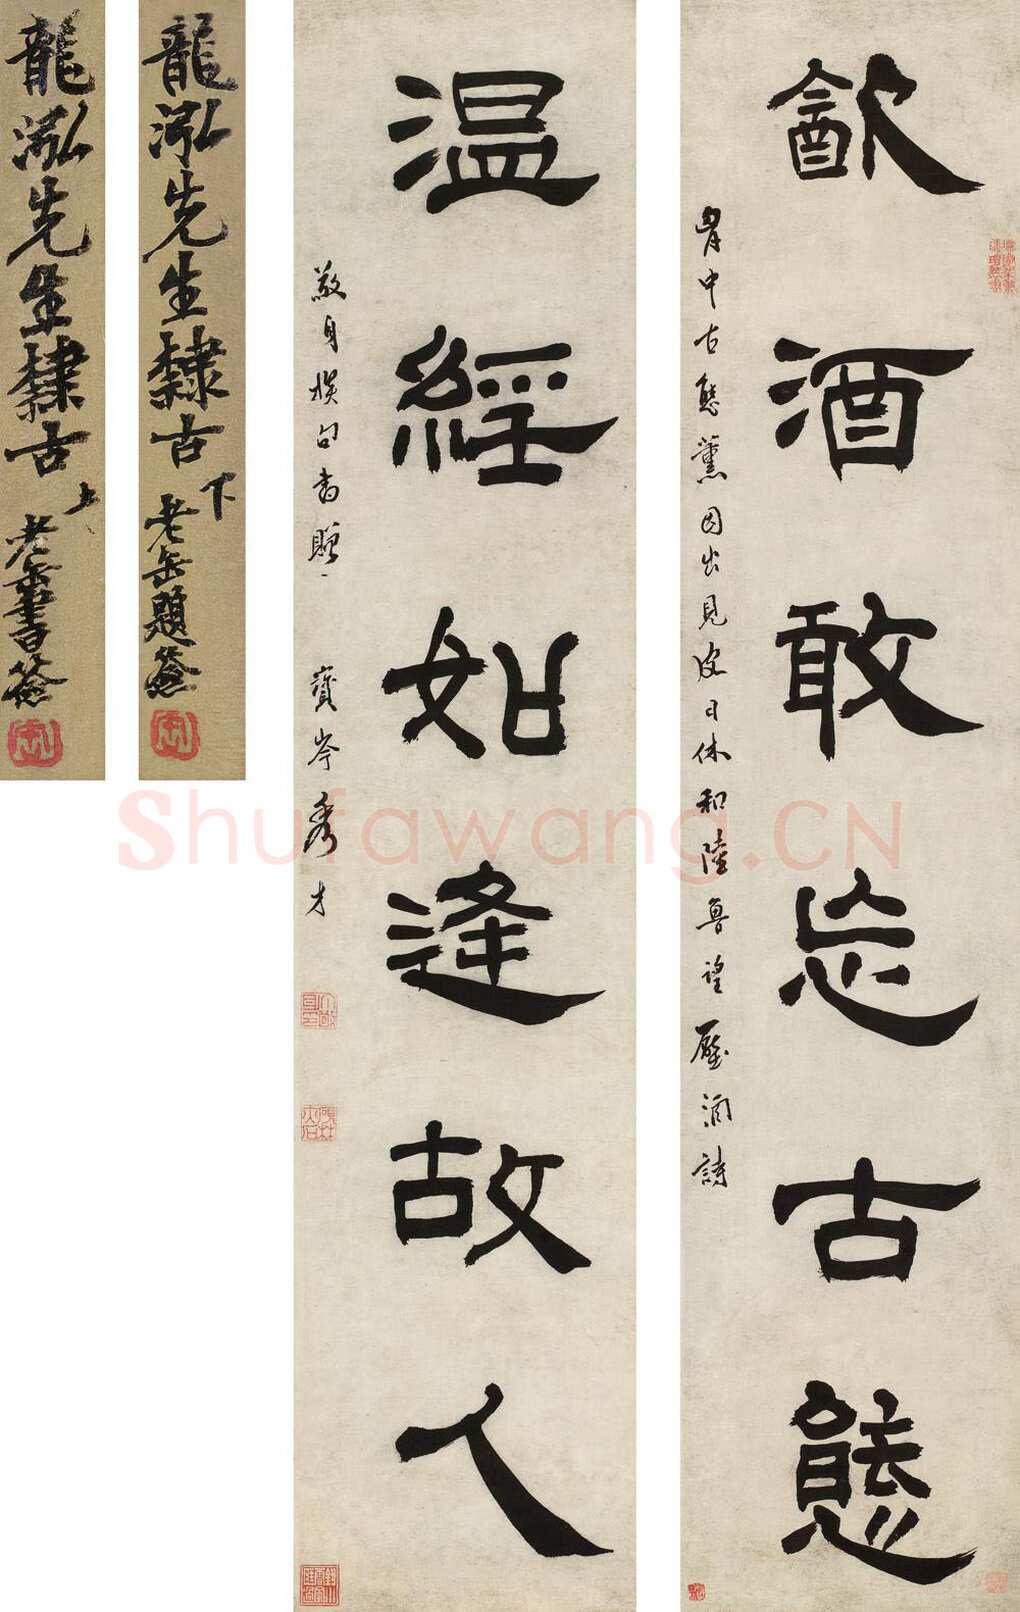 㱃酒敢忘古態
胷中古態薰因出見皮日休和陸魯望壓酒詩
温經如逢故人
敬身撰句書贈
寶岑秀才
龍泓先生隸古下
老缶題簽
龍泓先生隸古上
老缶書簽
Shufawang.CN